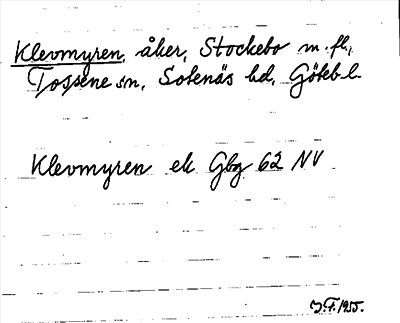 Klevmyren, åker, Stockebo m.fl.,
Tossene sn, Sotenäs hd, Göteb. l.
Klevmyren ek Gbg 62 NV
J.F. 1955.